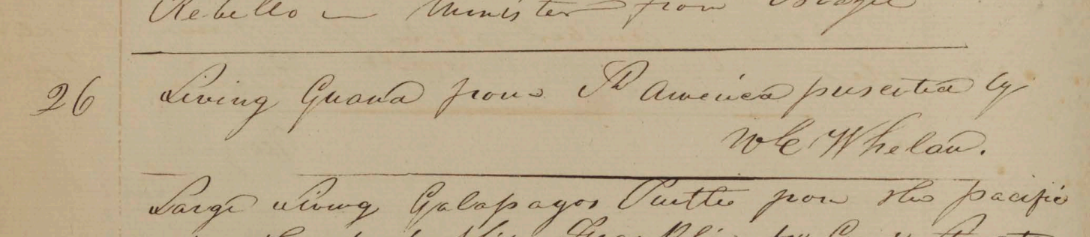 Rebello — Minister from Brazil
26 Living Guana from Sth America presented by
W C Whelan.
Large Living Galapagos Turtle from the pacific